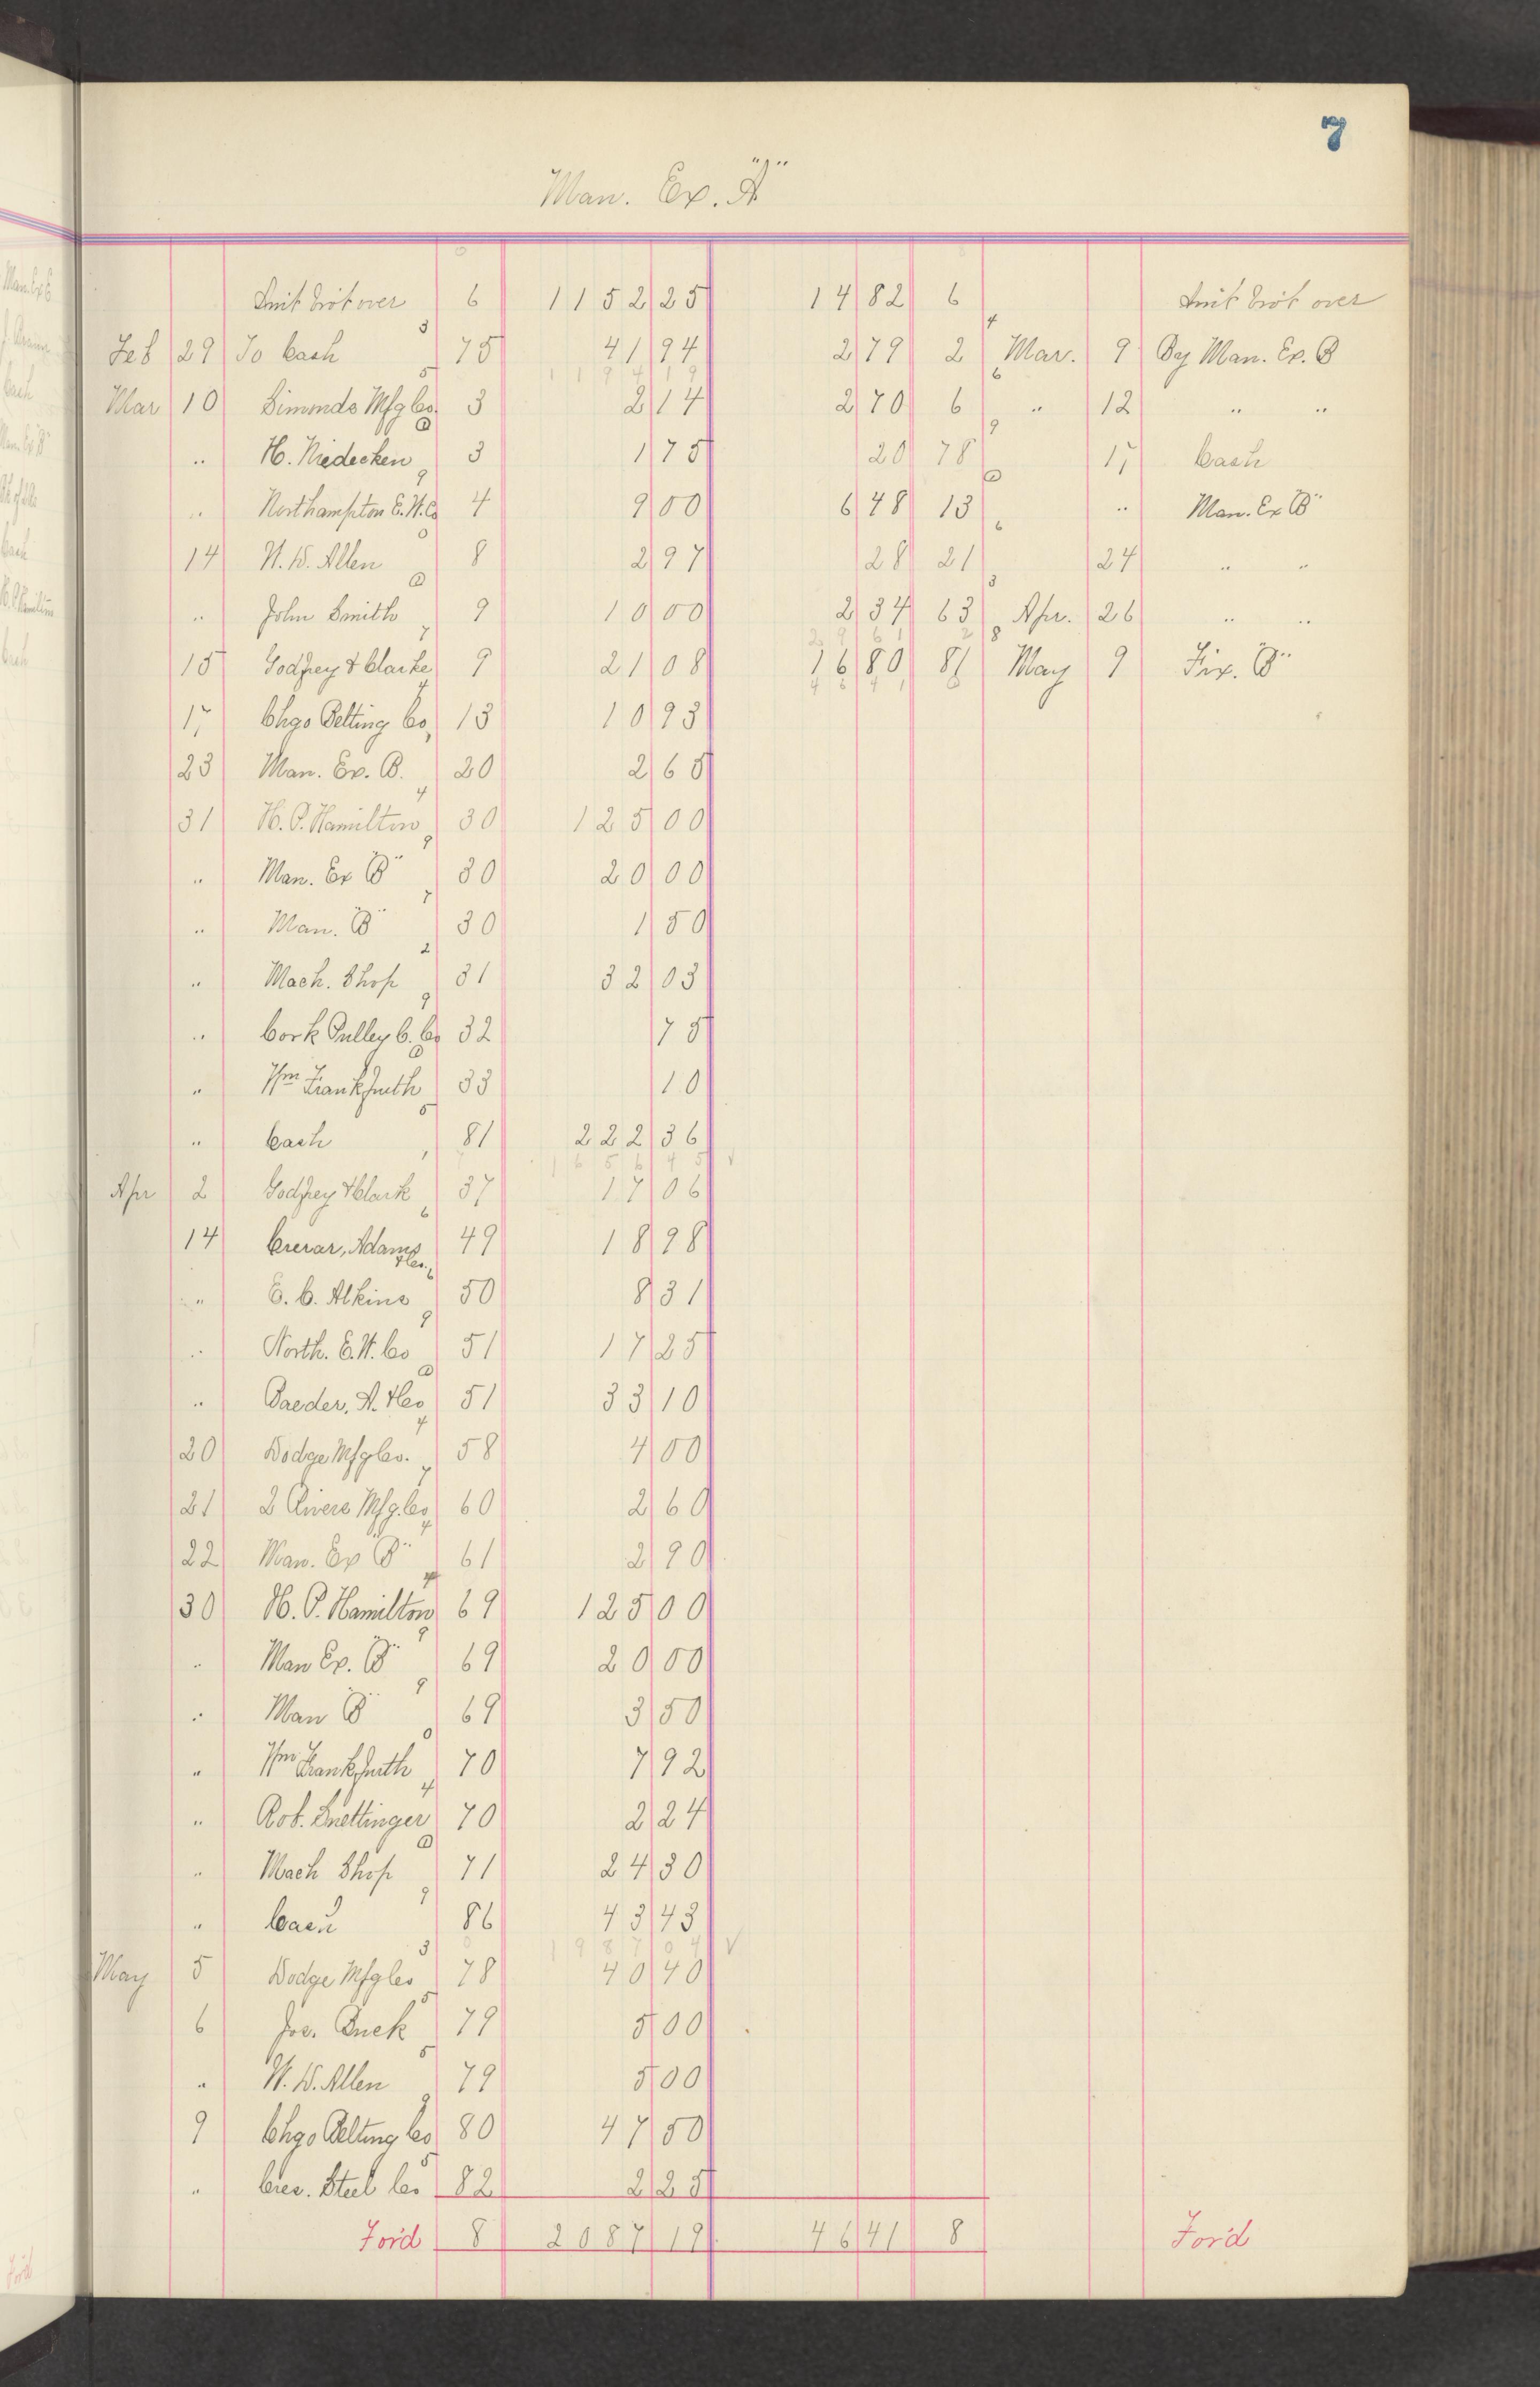 7
Man. Ex. "A"
Amt brot over 6 1152 25 14 82 6 Amt brot over
Feb 29 To Cash 75 41 94 2 79 2 Mar. 9 By Man. Ex. B
1194 19
Mar 10 Simonds Mfg Co. 3 2 14 2 70 6 " 12 " "
" H. Niedecken 3 1 75 20 78 17 Cash
" Northampton E.W. Co 4 9 00 6 48 13 " Man. Ex "B"
14 W. D. Allen 8 2 97 28 21 24 " "
" John Smith 9 10 00 2 34 63 Apr. 26 " "
29 61
15 Godfrey & Clarke 9 21 08 16 80 81 May 9 Fix. "B"
46 41
17 Chgo Belting Co, 13 10 93
23 Man. Ex. B. 20 2 65
31 H. P. Hamilton 30 125 00
" Man. Ex "B" 30 20 00
" Man. "B" 30 1 50
" Mach. Shop 31 32 03
" Cork Pulley C. Co 32 75
" Wm Frankfurth 33 10
" Cash 81 222 36
1656 45 √
Apr 2 Godfrey & Clark 37 17 06
14 Crerar, Adams & Co. 49 18 98
" E. C. Atkins 50 8 31
" North. E.W. Co 51 17 25
" Baeder, A. & Co 51 33 10
20 Dodge Mfg Co. 58 4 00
21 2 Rivers Mfg. Co, 60 2 60
22 Man. Ex "B" 61 2 90
30 H. P. Hamilton 69 125 00
" Man Ex. "B" 69 20 00
" Man "B" 69 3 50
" Wm Frankfurth 70 7 92
" Rob. Snettinger 70 2 24
" Mach Shop 71 24 30
" Cash 86 43 43
1987 04 √
May 5 Dodge Mfg Co 78 40 40
6 Jos. Buck 79 5 00
" W. D. Allen 79 5 00
9 Chgo Belting Co 80 47 50
" Cres. Steel Co 82 2 25
For'd 8 2087 19 46 41 8 For'd